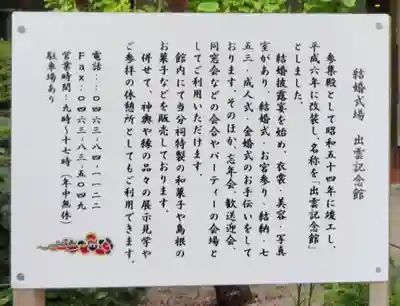 結婚式場　出雲記念館
参集殿として昭和五十四年に竣工し、
平成六年に改装し、名称を「出雲記念館」
としました。
結婚披露宴を始め、衣裳・美容・写真
室があり、結婚式・お宮参り・結納・七
五三・成人式・金婚式のお手伝いをして
おります。そのほか、忘年会、歓送迎会、
同窓会などの会合やパーティーの会場と
してご利用いただけます。
館内にて当分祠特製の和菓子や島根の
お菓子などを販売しております。
併せて、神輿や縁の品々の展示見学や
ご参拝の休憩所としてもご利用できます。
電話：：０４６３-８４-１１２２
Ｆａｘ：０４６３-８３-５０４９
営業時間：九時〜十七時（年中無休）
駐車場あり